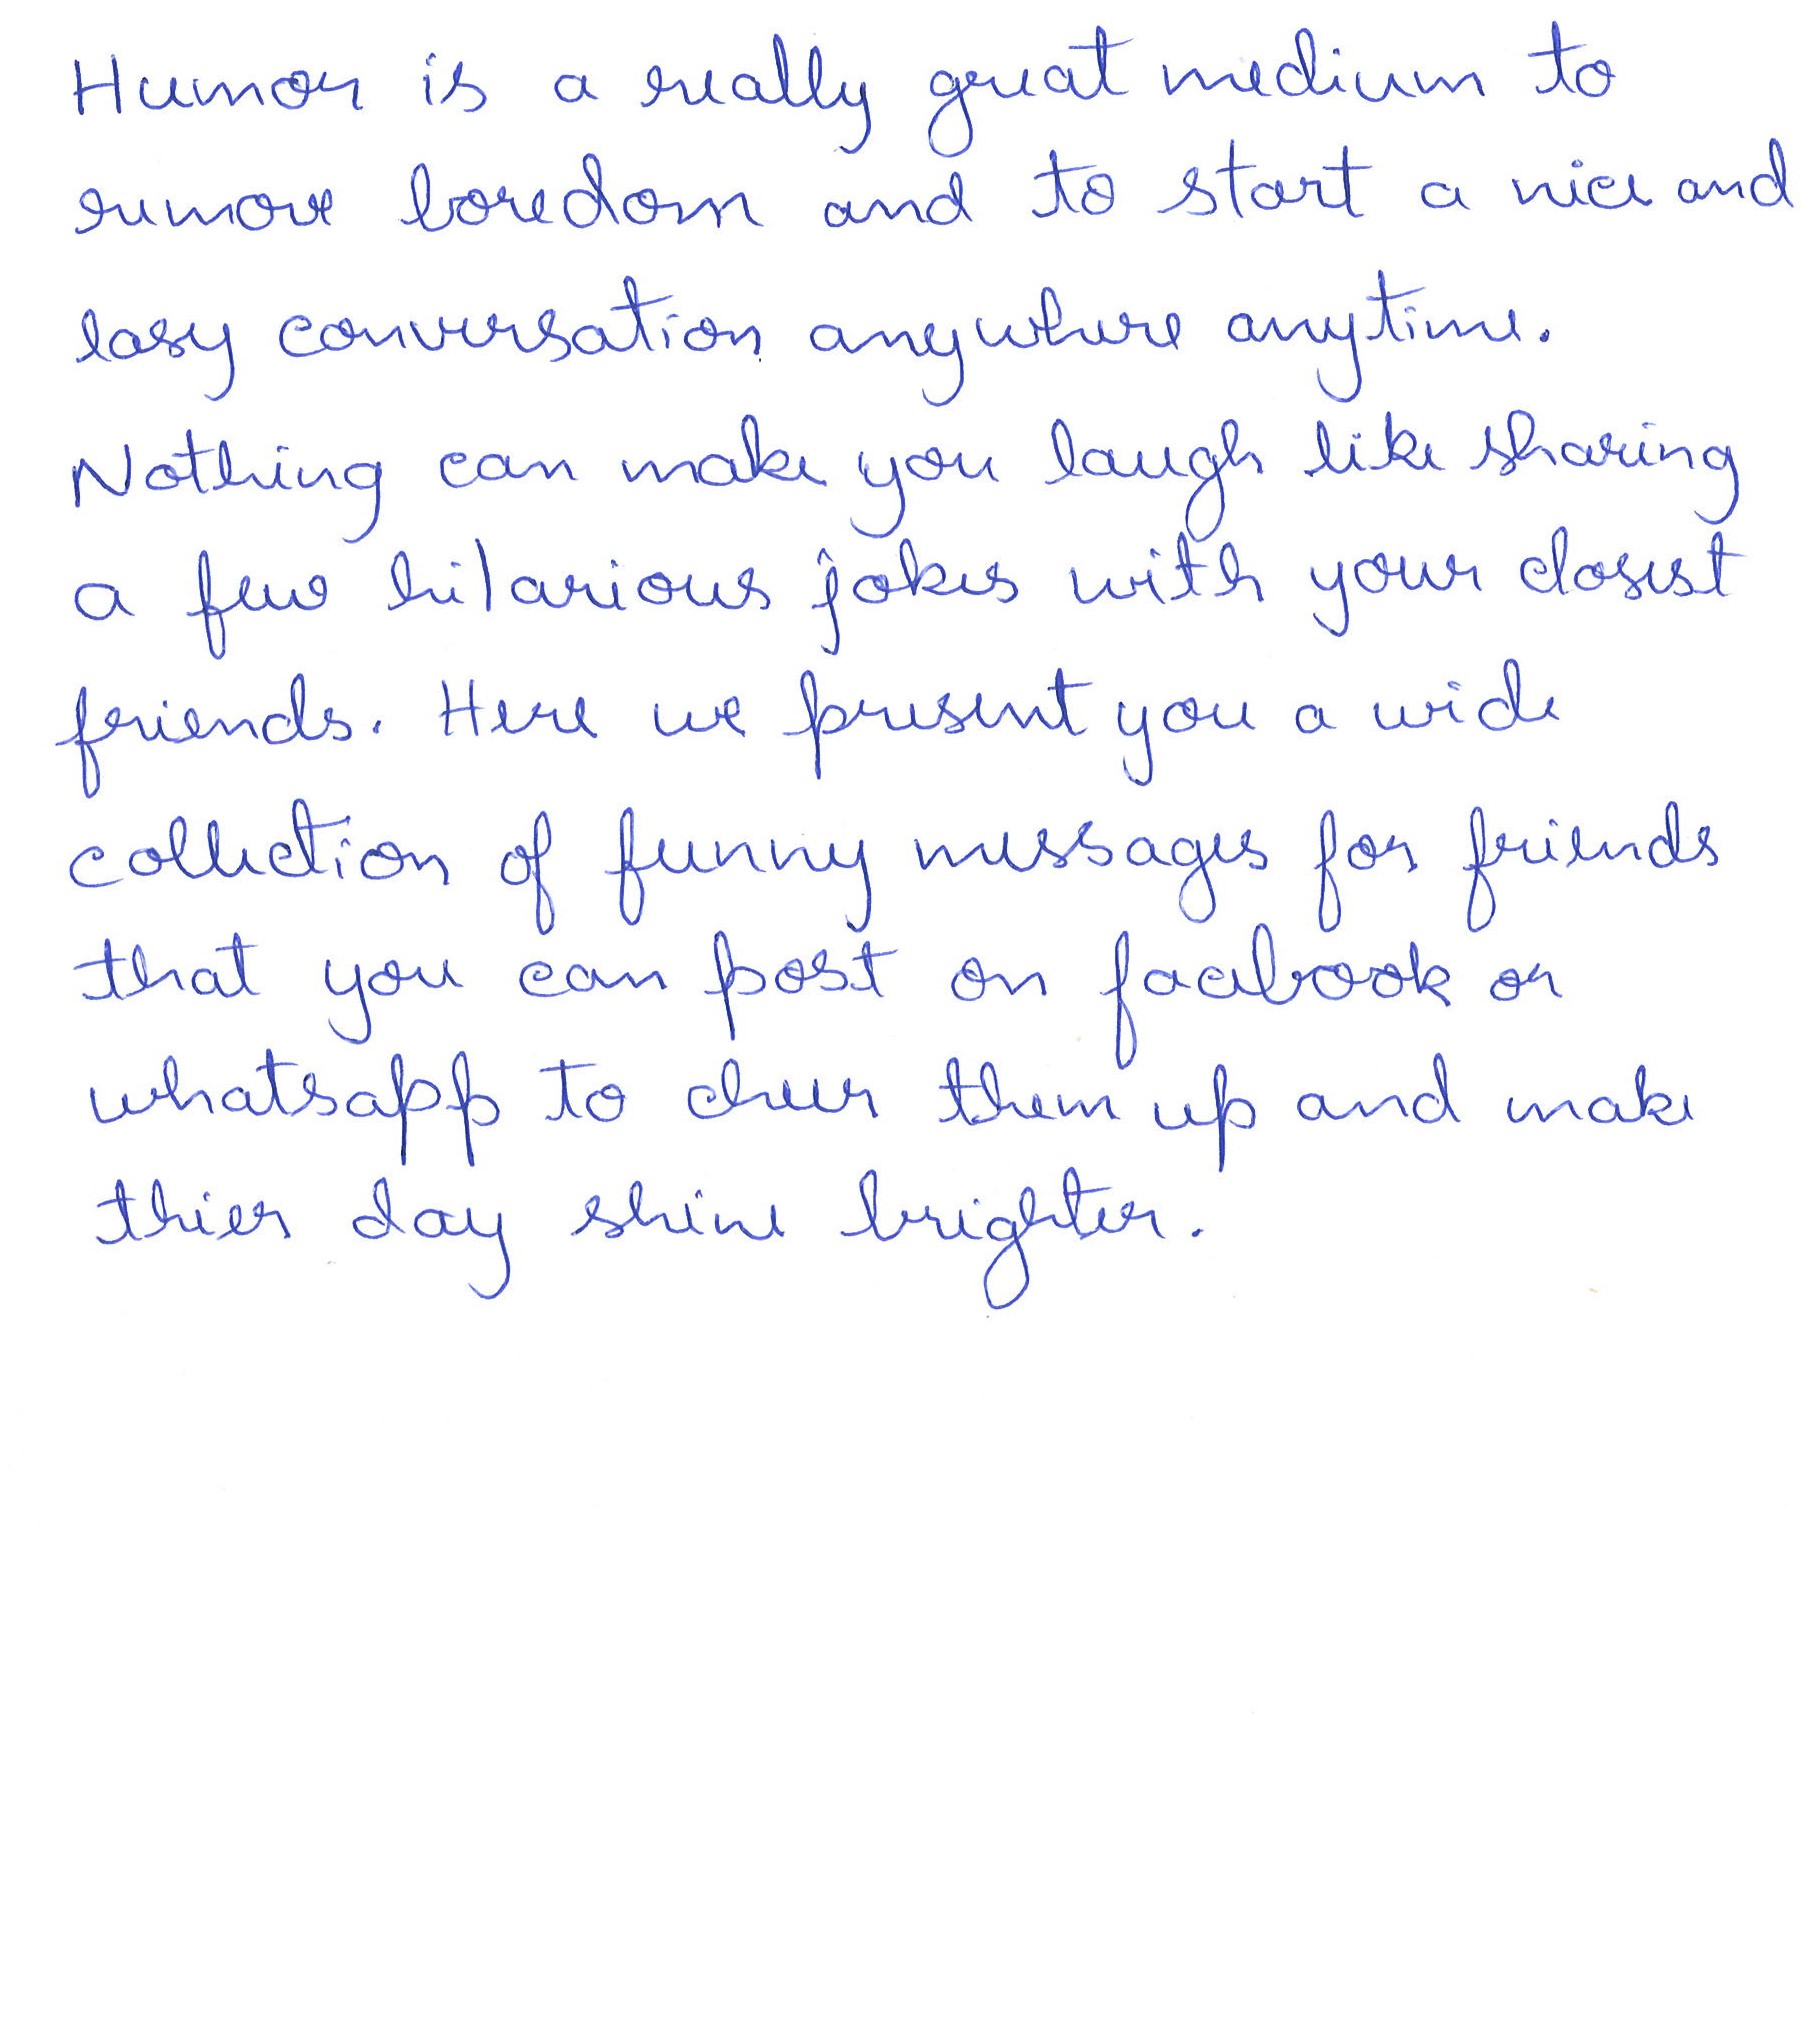 Humor is a really great medium to
remove boredom and to start a nice and
easy conversation anywhere anytime.
Nothing can make you laugh like sharing
a few hilarious jokes with your closest
friends. Here we present you a wide
collection of funny messages for friends
that you can post on facebook or
whatsapp to cheer them up and make
thier day shine brighter.